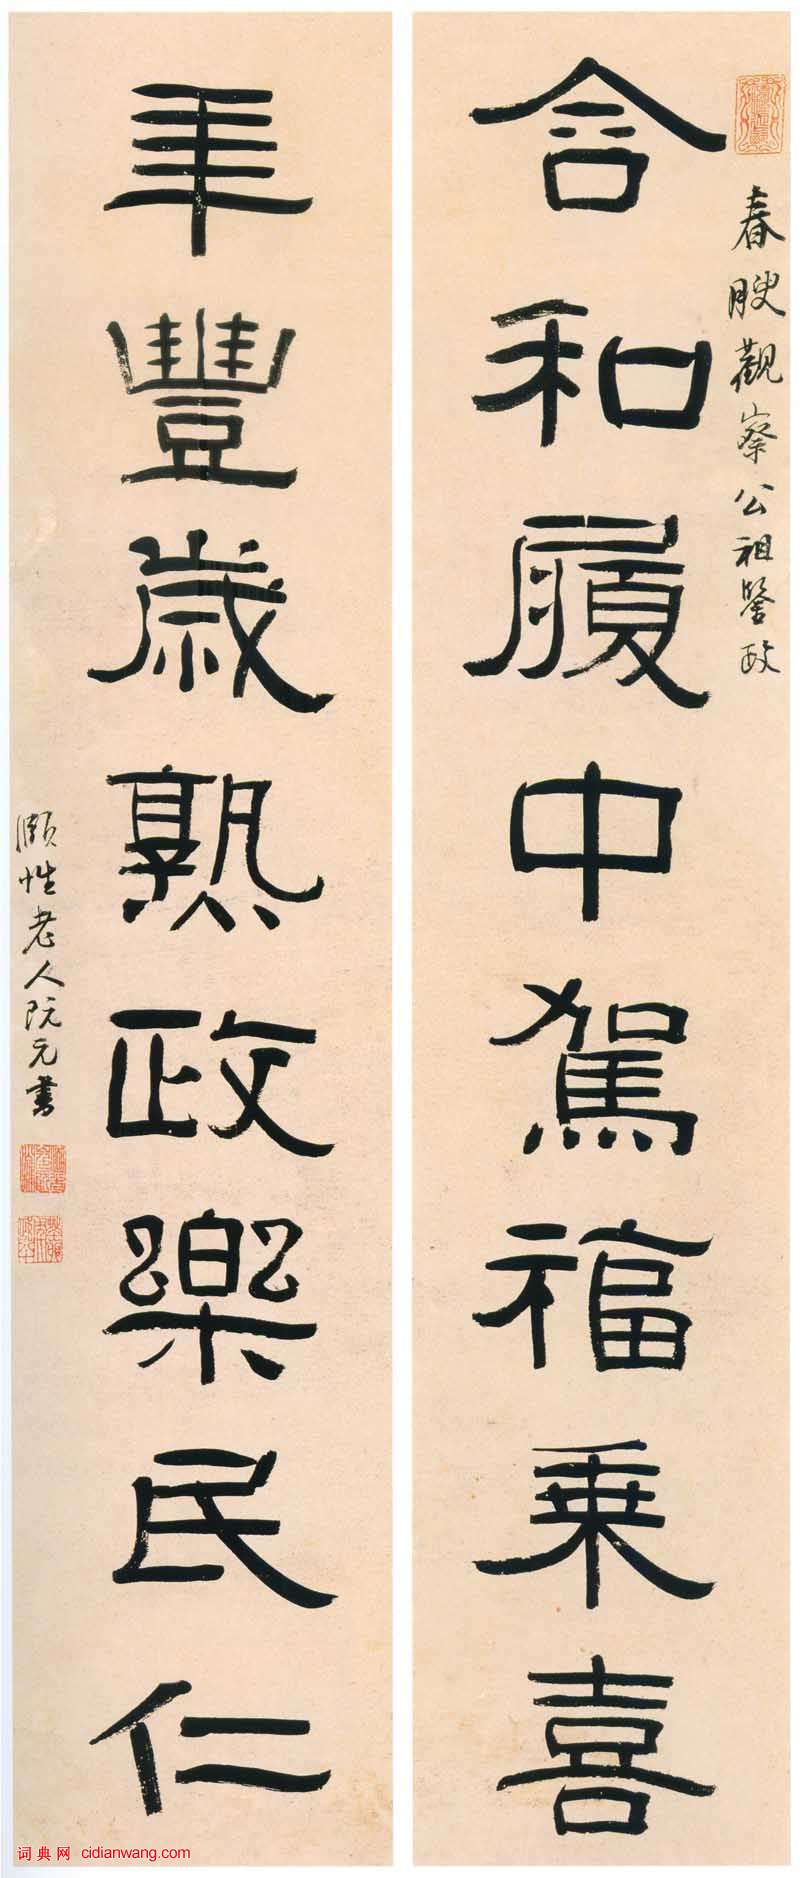 春腴觀察公祖鑒政
含和履中駕福乘喜
年豐歲熟政樂民仁
頤性老人阮元書
词典网 cidianwang.com